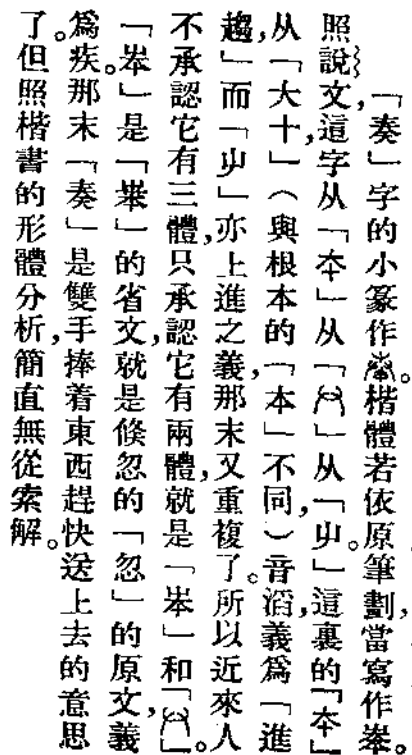 「奏」字的小篆作。楷體若依原筆劃,當寫作。
照說文,這字从「夲」从「𠬞」从「屮。」這裏的「夲」
从「大十,」(與根本的「本」不同,)音滔,義爲「進
趨,」而「屮」亦上進之義,那末又重複了。所以近來人
不承認它有三體,只承認它有兩體,就是「」和「𠬞」。
「」是「」的省文,就是倏忽的「忽」的原文,義
爲疾。那末「奏」是雙手捧着東西趕快送上去的意思
了。但照楷書的形體分析,簡直無從索解。